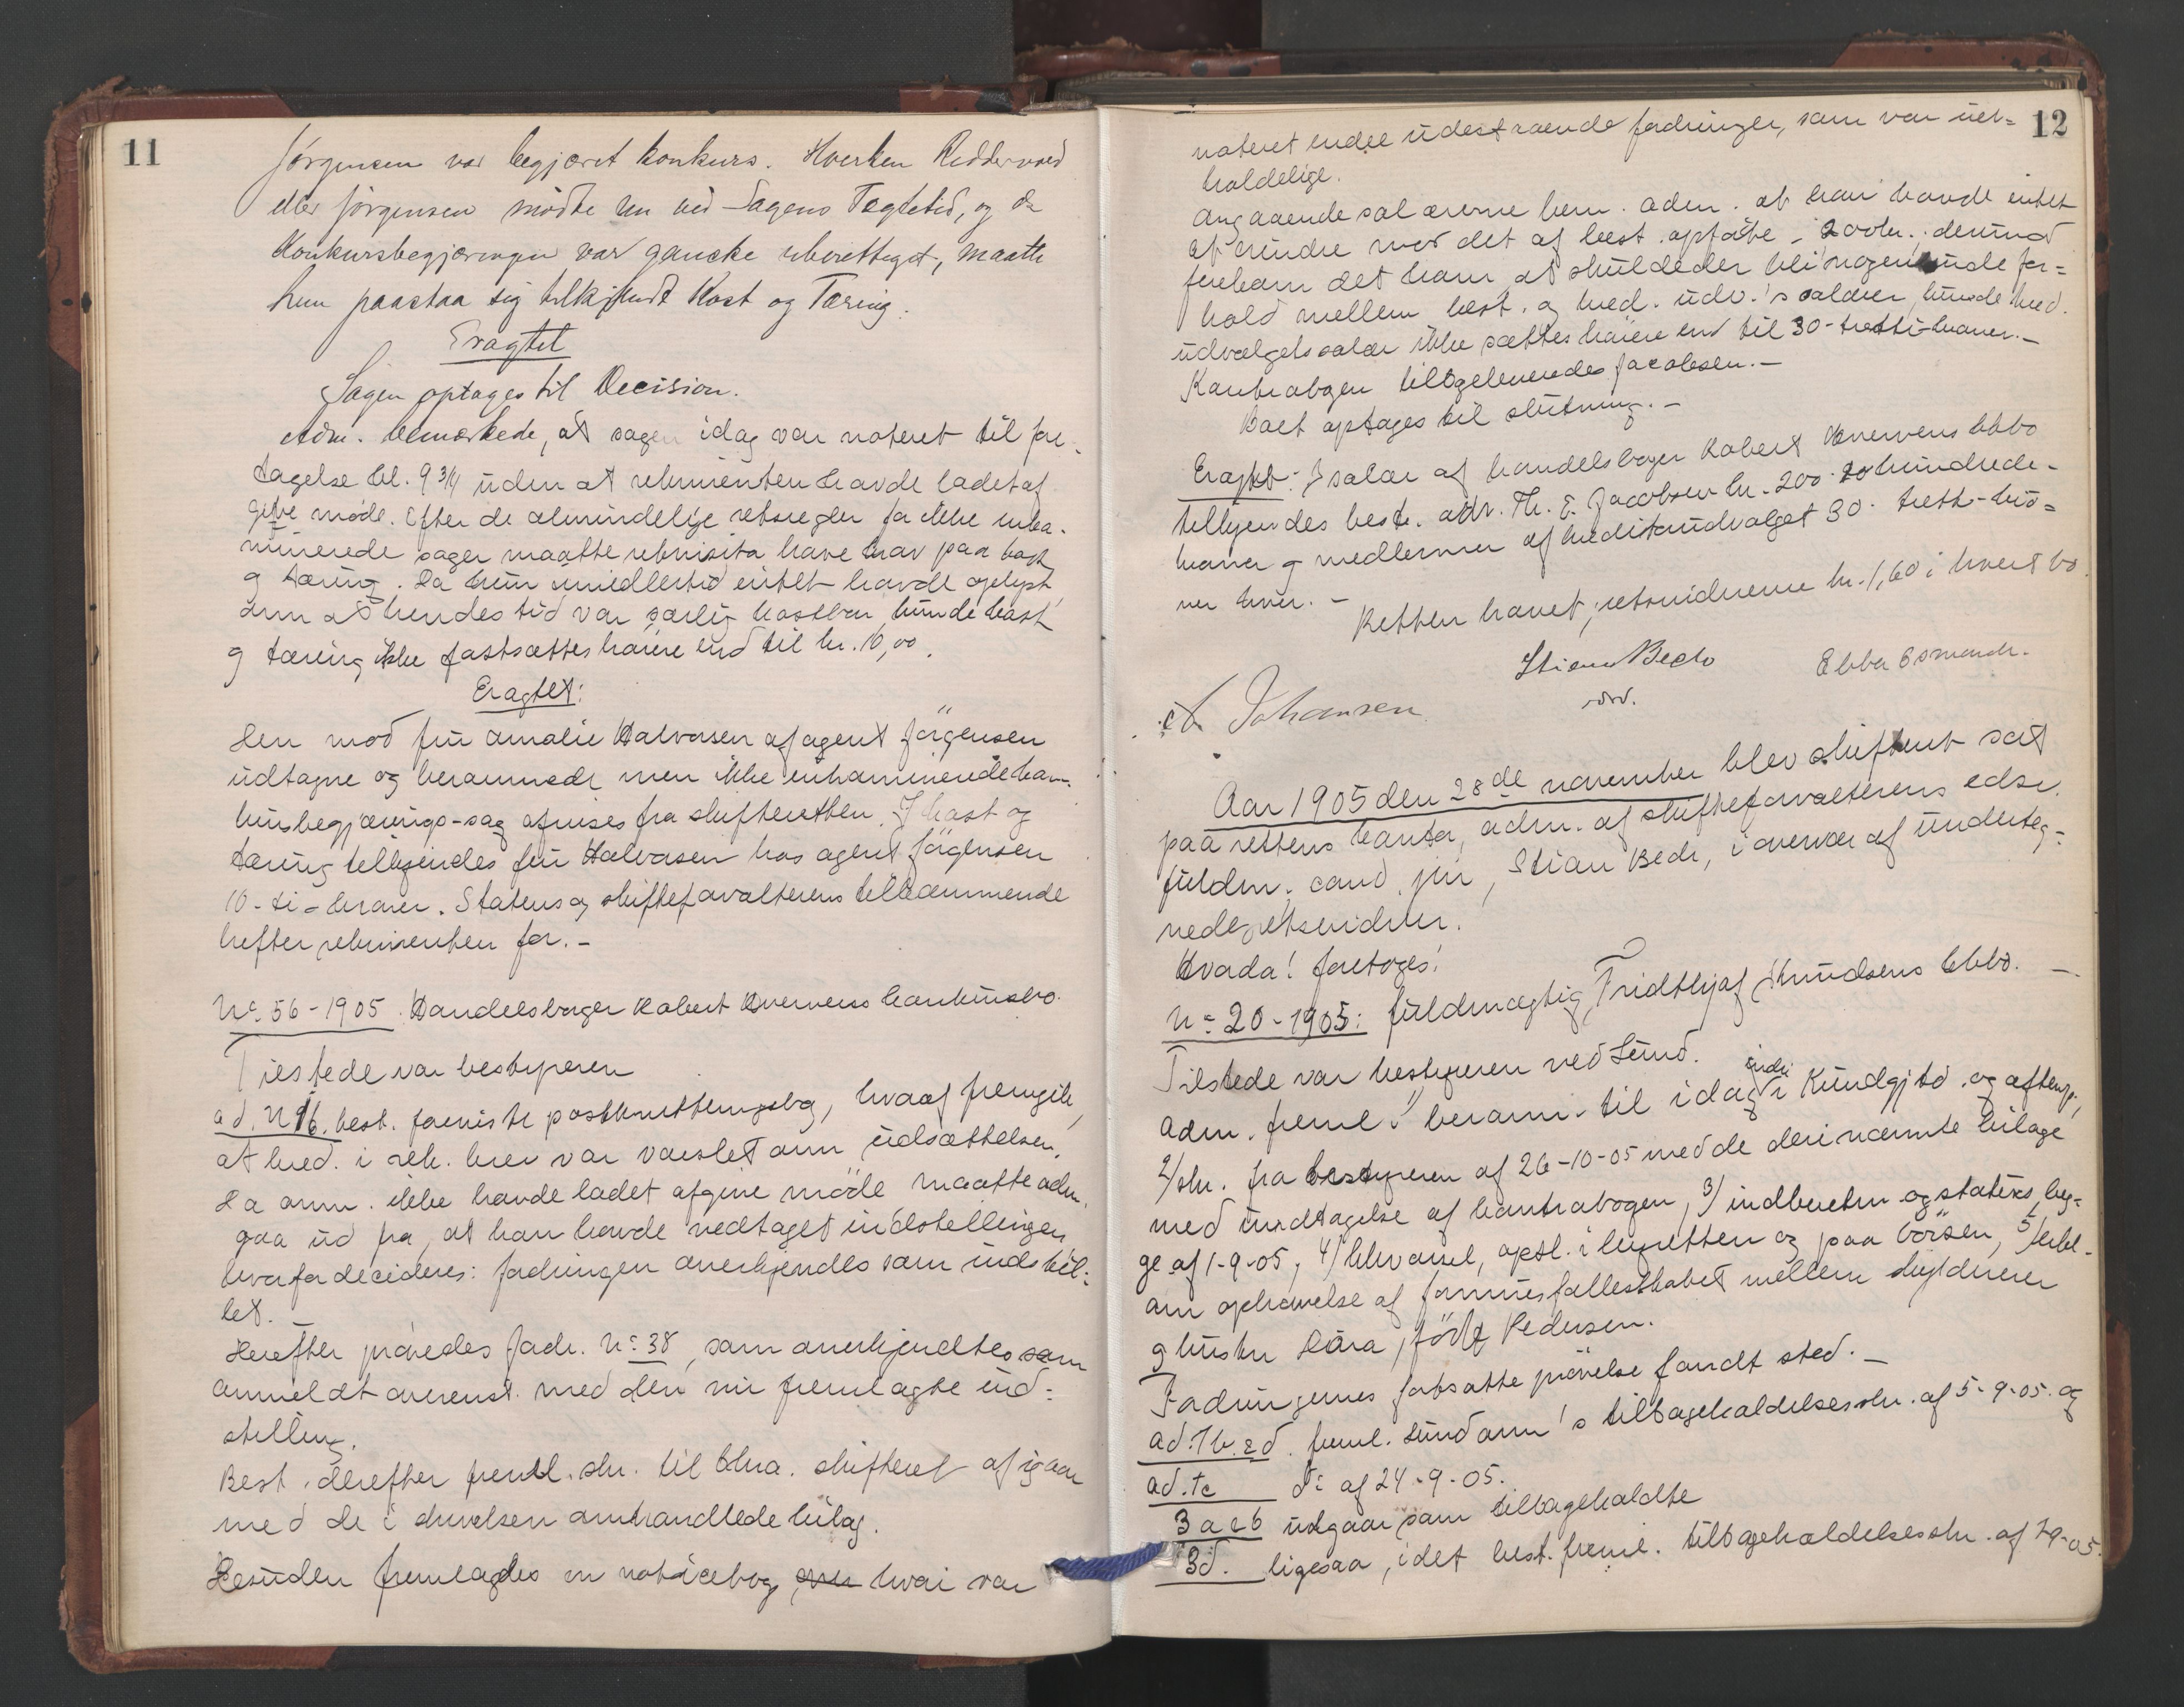 11
Jørgensen var begjæret konkurs. Hverken Reddervold
eller Jørgensen mødte nu ved Sagens Tægtetid, og da
Konkursbegjæringen var ganske uberettiget, maatte
hun paastaa sig tilkjendt Kost og Tæring.
Eragtet
Sagen optages til Decision.
Adm. bemærkede, at sagen idag var noteret til fore-
tagelse kl. 9 3/4 uden at rekvirenten havde ladet af
give møde. Efter de almindelige retsregler for ikke inka-
minerede sager maatte rekvisita have krav paa kost
og tæring. Da hun imidlertid intet havde oplyst
om at hendes tid var særlig kostbar, kunde kost
og tæring ikke fastsættes høiere end til kr. 10,00.
Eragtet:
Den mod fru Amalie Halvorsen af agent Jörgensen
udtagne og berammede men ikke inkaminerede kon-
kursbegjærings-sag afvises fra skifteretten. I kost og
tæring tilkjendes fru Halvorsen hos agent Jörgensen
10-ti-kroner. Statens og skifteforvalterens tilkommende
hefter rekvirenten for.-
No. 56-1905. Handelsborger Robert Kvervens konkursbo.
Tilstede var bestyreren
ad. N 16. best. foreviste postkvitteringsbog, hvoraf fremgik,
at kred. i rek. brev var varslet om udsættelsen.
Da anm. ikke havde ladet afgive møde maatte adm.
gaa ud fra, at han havde vedtaget indstillingen
hvorfor decideres: fordringen anerkjendes som indstil-
let.
Derefter prøvedes fodr. No. 38, som anerkjendtes som
anmeldt overenst. med den nu fremlagte ind-
stilling.
Best. derefter freml. skr. til Chra. skifteret af igaar
med de i skrivelsen omhandlede bilag.
Desuden fremlagdes en noticebog, hvori var
12
noteret endel udestaaende fordringer, som var uer-
holdelige.
Angaaende salærerne bem. adm. at han havde intet
at erindre mod det af best. opførte - 200 kr., derimod
forekom det ham, at skulde der bli nogenlunde for-
hold mellem best. og kred. udv.'s salær, kunde kred.
udvalgets salær ikke sættes høiere end til 30-tretti-kroner.-
Kontrabogen tilbageleveredes Jacobsen.-
Boet optages til slutning.-
Eragtet: I salær af handelsborger Robert Kvervens kbbo
tilkjendes best. adv. Th. E. Jacobsen kr. 200. tohundrede-
kroner og medlemmer af kreditorudvalget 30. tretti-kro-
ner hver.-
Retten hævet; retsvidnerne kr. 1,60 i hvert bo.
Stian Bech
cst.
Ebba Osmundsen.
A Johansen
Aar 1905 den 28de november blev skifteret sat
paa rettens kontor, adm. af skifteforvalterens edsv.
fuldm. cand. jur. Stian Bech, i overvær af underteg-
nede retsvidner.
Hvorda! foretoges!
No. 20-1905: fuldmægtig Fridthjof Knudsens kbbo.-
Tilstede var bestyreren ved Lund.
Adm. freml. 1/ beram. til idag indr. i Kundgjtd. og aftenp.,
2/ skr. fra bestyreren af 26-10-05 med de deri nævnte bilage
med undtagelse af kontrabogen, 3/ indberetn. og status, beg-
ge af 1-9-05, 4/ bkvarsel, opsl. i byretten og paa börsen, 5/ erkl.
om ophævelse af formuesfællesskabet mellem skyldneren
og hustru Dora, født Pedersen.
Fordringernes fortsatte prøvelse fandt sted.-
ad. 1b.2d. freml. Lund anm's tilbagekaldelsesskr. af 5-9-05. og
ad. 1c do. af 24-9-05.
3 a & b udgaar som tilbagekaldte
3d. ligesaa, idet best. freml. tilbagekaldelsesskr. af 7-9-05.